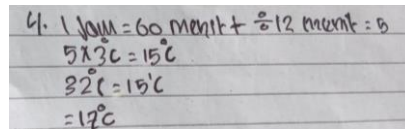 4. 1 Jam = 60 menit + ÷ 12 menit = 5
5 x 3°C = 15°C
32°C = 15°C
= 17°C